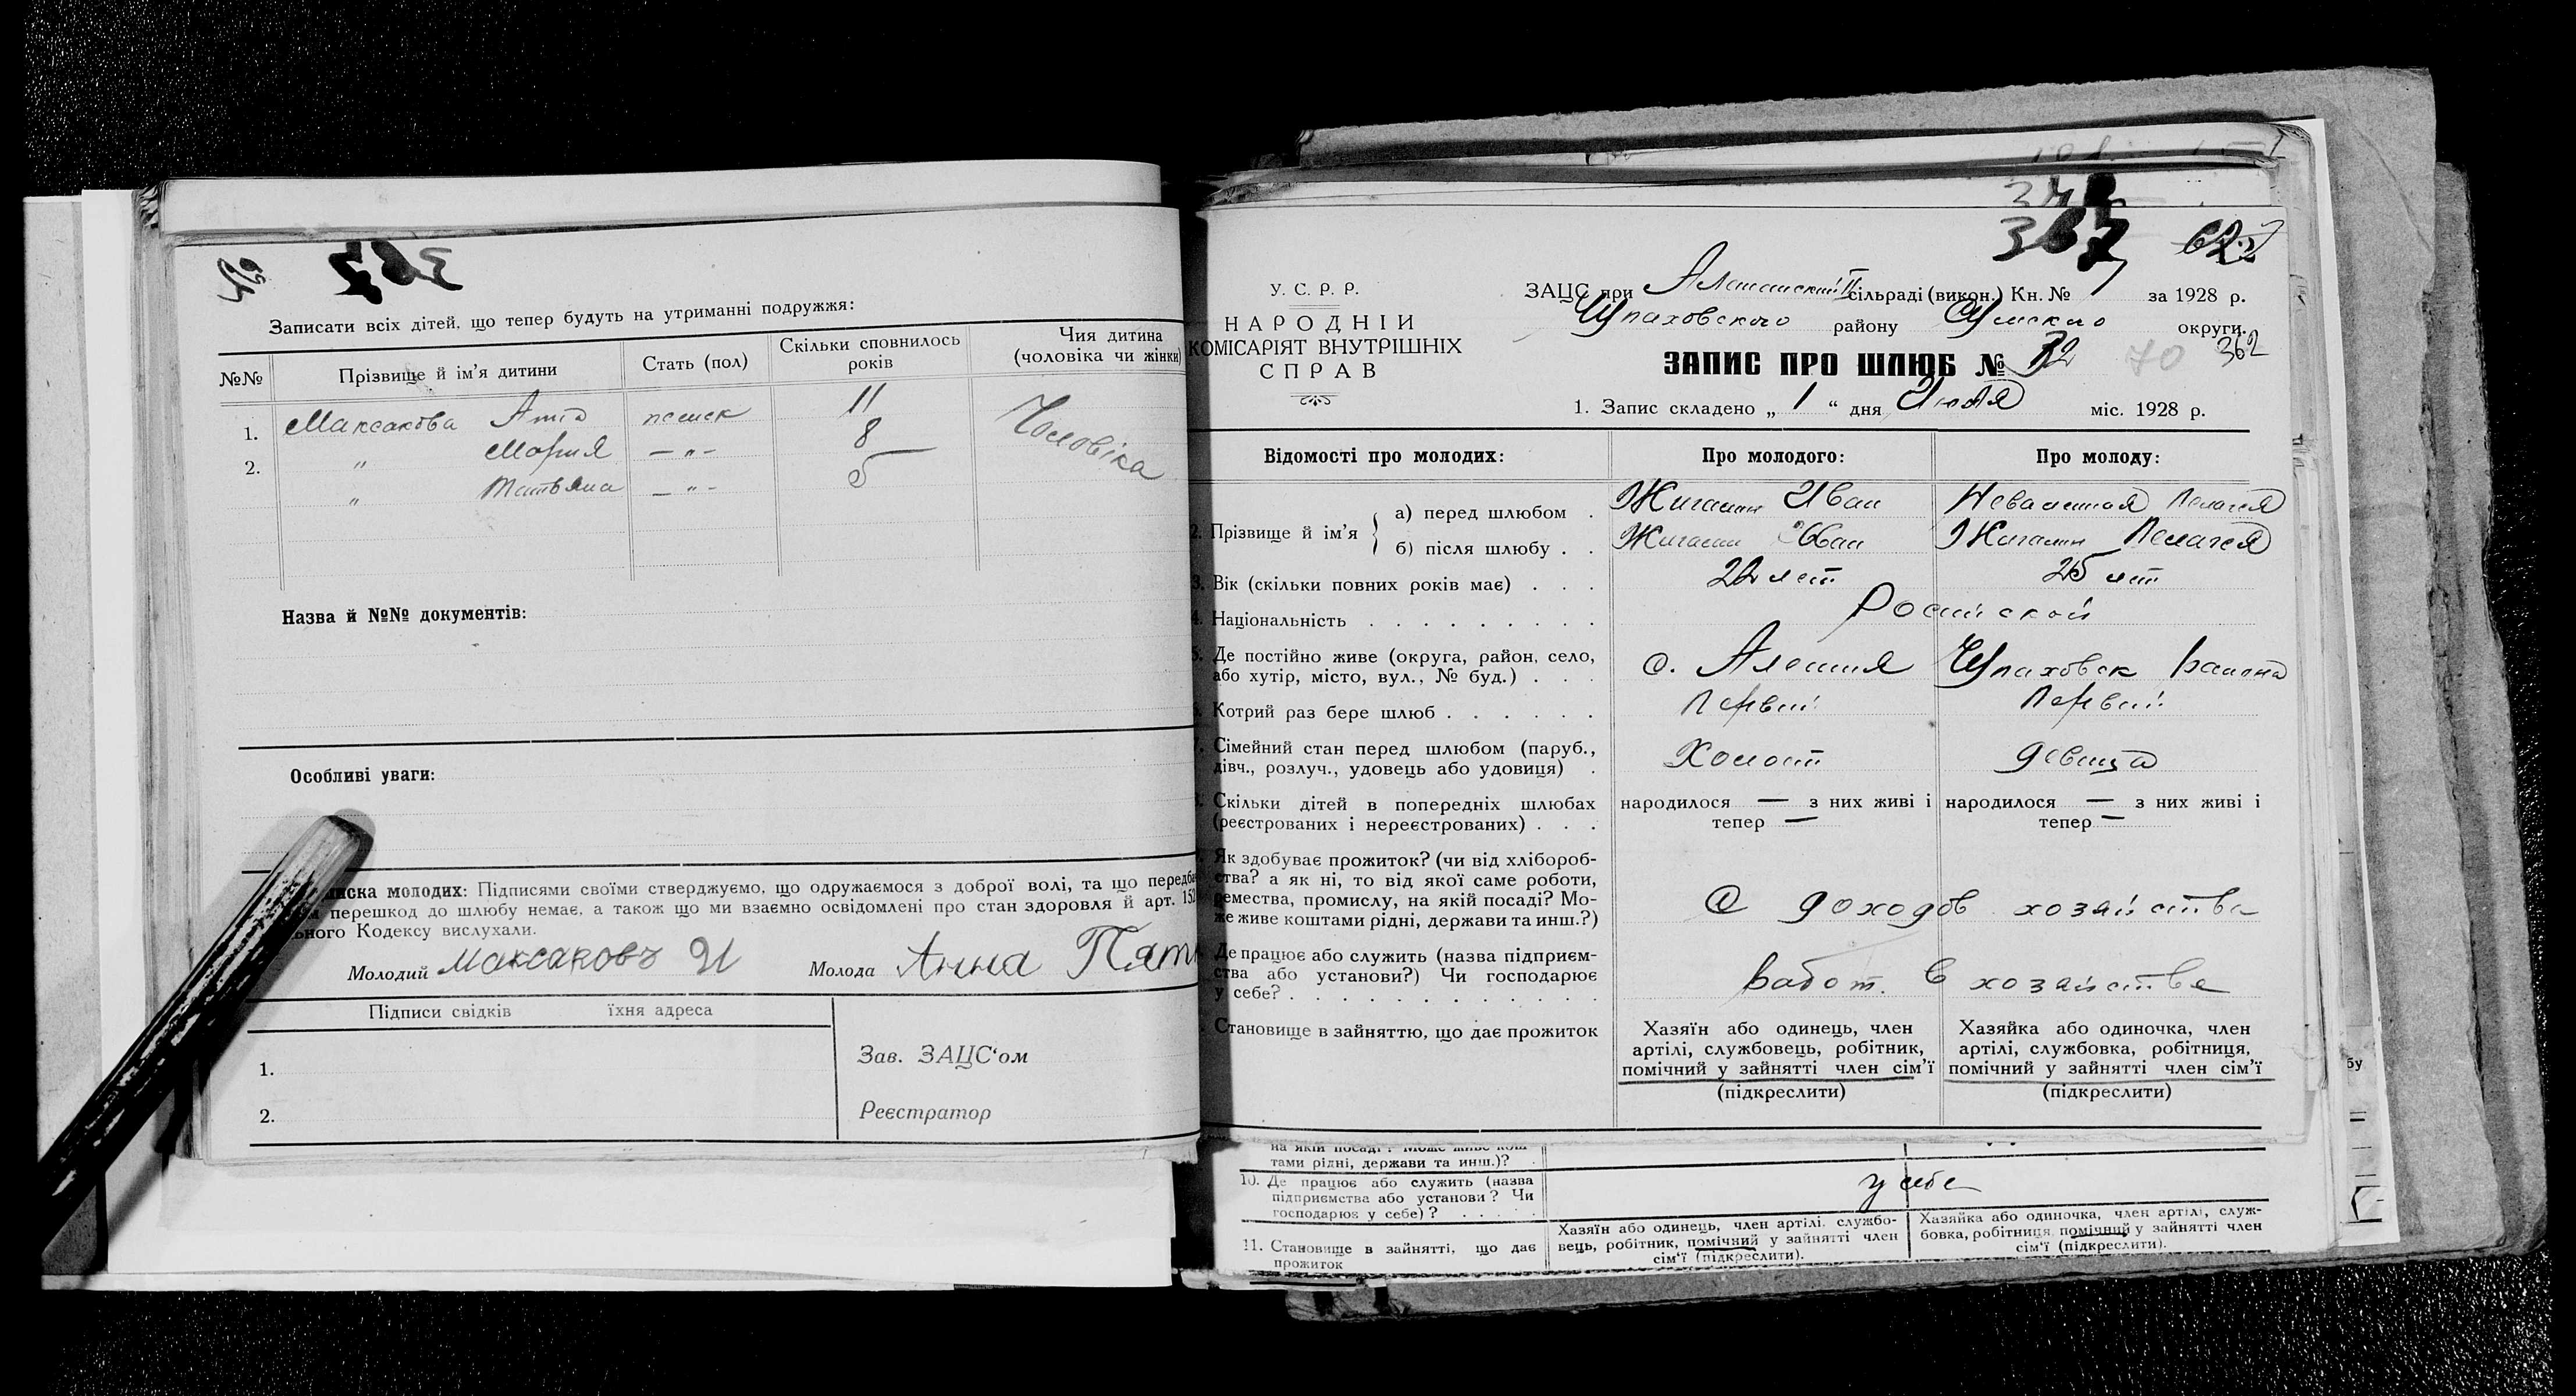 367
Записати всіх дітей, що тепер будуть на утриманні подружжя:
№№ Прізвище й ім'я дитини Стать (пол) Скільки сповнилось років Чия дитина (чоловіка чи жінки)
1. Максакова 11 Чоловіка
2. " Мария — " — 8
" Татьяна — " — 5
Назва й №№ документів:
Особливі уваги:
молодих: Підписями своїми стверджуємо, що одружаємося з доброї волі, та що
перешкод до шлюбу немає, а також що ми взаємно освідомлені про стан здоровля й арт.
Кодексу вислухали.
Молодий Максаковъ И Молода Анна
Підписи свідків їхня адреса
1.
2.
Зав. ЗАЦС'ом
Реєстратор
367
У. С. Р. Р.
НАРОДНІЙ
КОМІСАРІЯТ ВНУТРІШНІХ
СПРАВ
ЗАЦС при сільраді (викон.) Кн. № за 1928 р.
району Сумского округи.
ЗАПИС ПРО ШЛЮБ № 32 70 362
1. Запис складено „ 1 “ дня Июля міс. 1928 р.
Відомості про молодих: Про молодого: Про молоду:
2. Прізвище й ім'я а) перед шлюбом . Жигалин Иван Пелагея
б) після шлюбу . . Жигалин Иван Жигалин Пелагея
3. Вік (скільки повних років має) . . . 22 лет 25 лет
4. Національність . . . . . . . . .
5. Де постійно живе (округа, район, село,
або хутір, місто, вул., № буд.) . . . с. Алешня
6. Котрий раз бере шлюб . . . . . . Первий Первий
7. Сімейний стан перед шлюбом (паруб.,
дівч., розлуч., удовець або удовиця) . Холост девица
Скільки дітей в попередніх шлюбах
(реєстрованих і нереєстрованих) . . .
народилося — з них живі і тепер —
народилося — з них живі і тепер —
Як здобуває прожиток? (чи від хлібороб-
ства? а як ні, то від якої саме роботи,
ремества, промислу, на якій посаді? Мо-
же живе коштами рідні, держави та инш.?)
С доходов хозяйства
Де працює або служить (назва підприєм-
ства або установи?) Чи господарює
у себе? . . . . . . . . . . . .
Работ. в хозяйстве
Становище в зайняттю, що дає прожиток
Хазяїн або одинець, член
артілі, службовець, робітник,
помічний у зайнятті член сім'ї
(підкреслити)
Хазяйка або одиночка, член
артілі, службовка, робітниця,
помічний у зайнятті член сім'ї
(підкреслити)
тами рідні, держави та инш.)?
10. Де працює або служить (назва
підприємства або установи? Чи
господарює у себе)? . . . . .
у себе
11. Становище в зайнятті, що дає
прожиток
Хазяїн або одинець, член артілі, службо-
вець, робітник, помічний у зайнятті член
сім'ї (підкреслити).
Хазяйка або одиночка, член артілі, служ-
бовка, робітниця, помічний у зайнятті член
сім'ї (підкреслити).